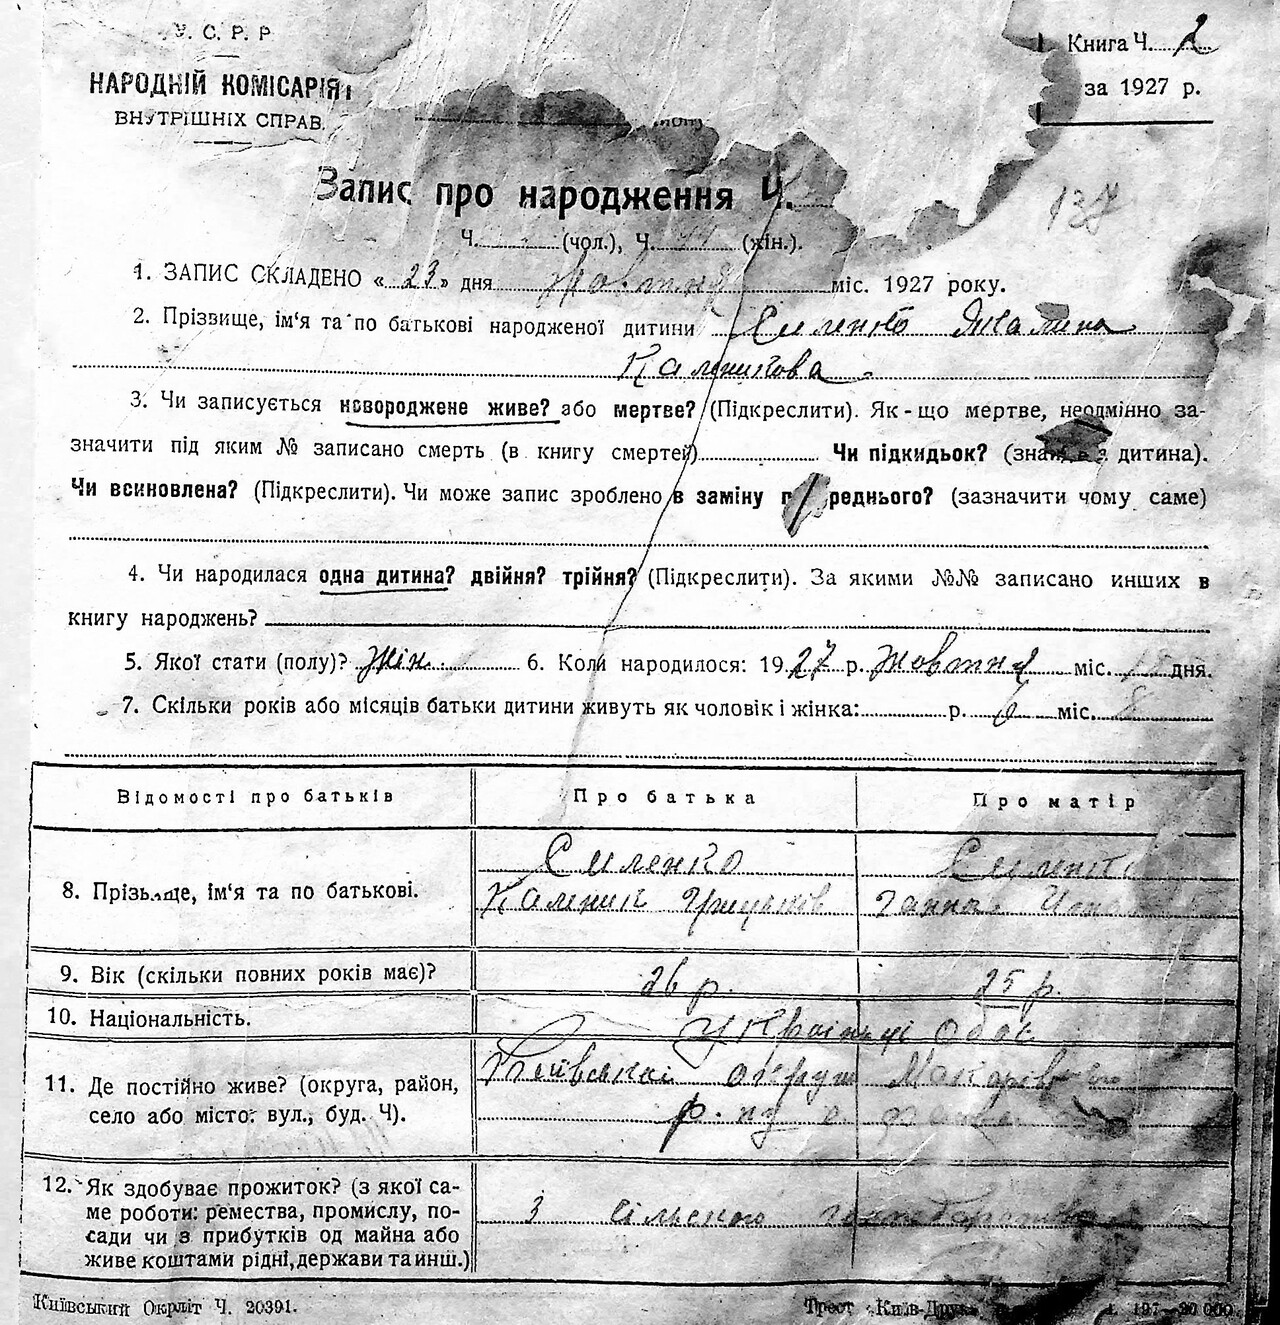 У. С. Р. Р
НАРОДНІЙ КОМІСАРІЯТ
ВНУТРІШНІХ СПРАВ.
Книга Ч. 2
за 1927 р.
Запис про народження Ч.
137
Ч. (чол.), Ч. (жін.).
1. ЗАПИС СКЛАДЕНО « 23 » дня Жовтня міс. 1927 року.
2. Прізвище, ім'я та по батькові народженої дитини Силенко
Каленикова
3. Чи записується новороджене живе? або мертве? (Підкреслити). Як-що мертве, неодмінно за-
значити під яким № записано смерть (в книгу смертей) Чи підкидьок? (знайдена дитина).
Чи всиновлена? (Підкреслити). Чи може запис зроблено в заміну попереднього? (зазначити чому саме)
4. Чи народилася одна дитина? двійня? трійня? (Підкреслити). За якими №№ записано инших в
книгу народжень?
5. Якої стати (полу)? жін. 6. Коли народилося: 1927 р. жовтня міс. дня.
7. Скільки років або місяців батьки дитини живуть як чоловік і жінка: р. 6 міс. 8
Відомості про батьків Про батька Про матір
8. Прізьвище, ім'я та по батькові. Силенко Каленик Грицьків Силенко Ганна
9. Вік (скільки повних років має)? 26 р. 25 р.
10. Національність. Українці обоє
11. Де постійно живе? (округа, район, Київської округи Макарівсько
село або місто: вул., буд. Ч). р-ну с.
12. Як здобуває прожиток? (з якої са-
ме роботи: ремества, промислу, по- З сільського господарства
сади чи з прибутків од майна або
живе коштами рідні, держави та инш.)
Київський Окрліт Ч. 20391.
Трест „Київ-Друк"